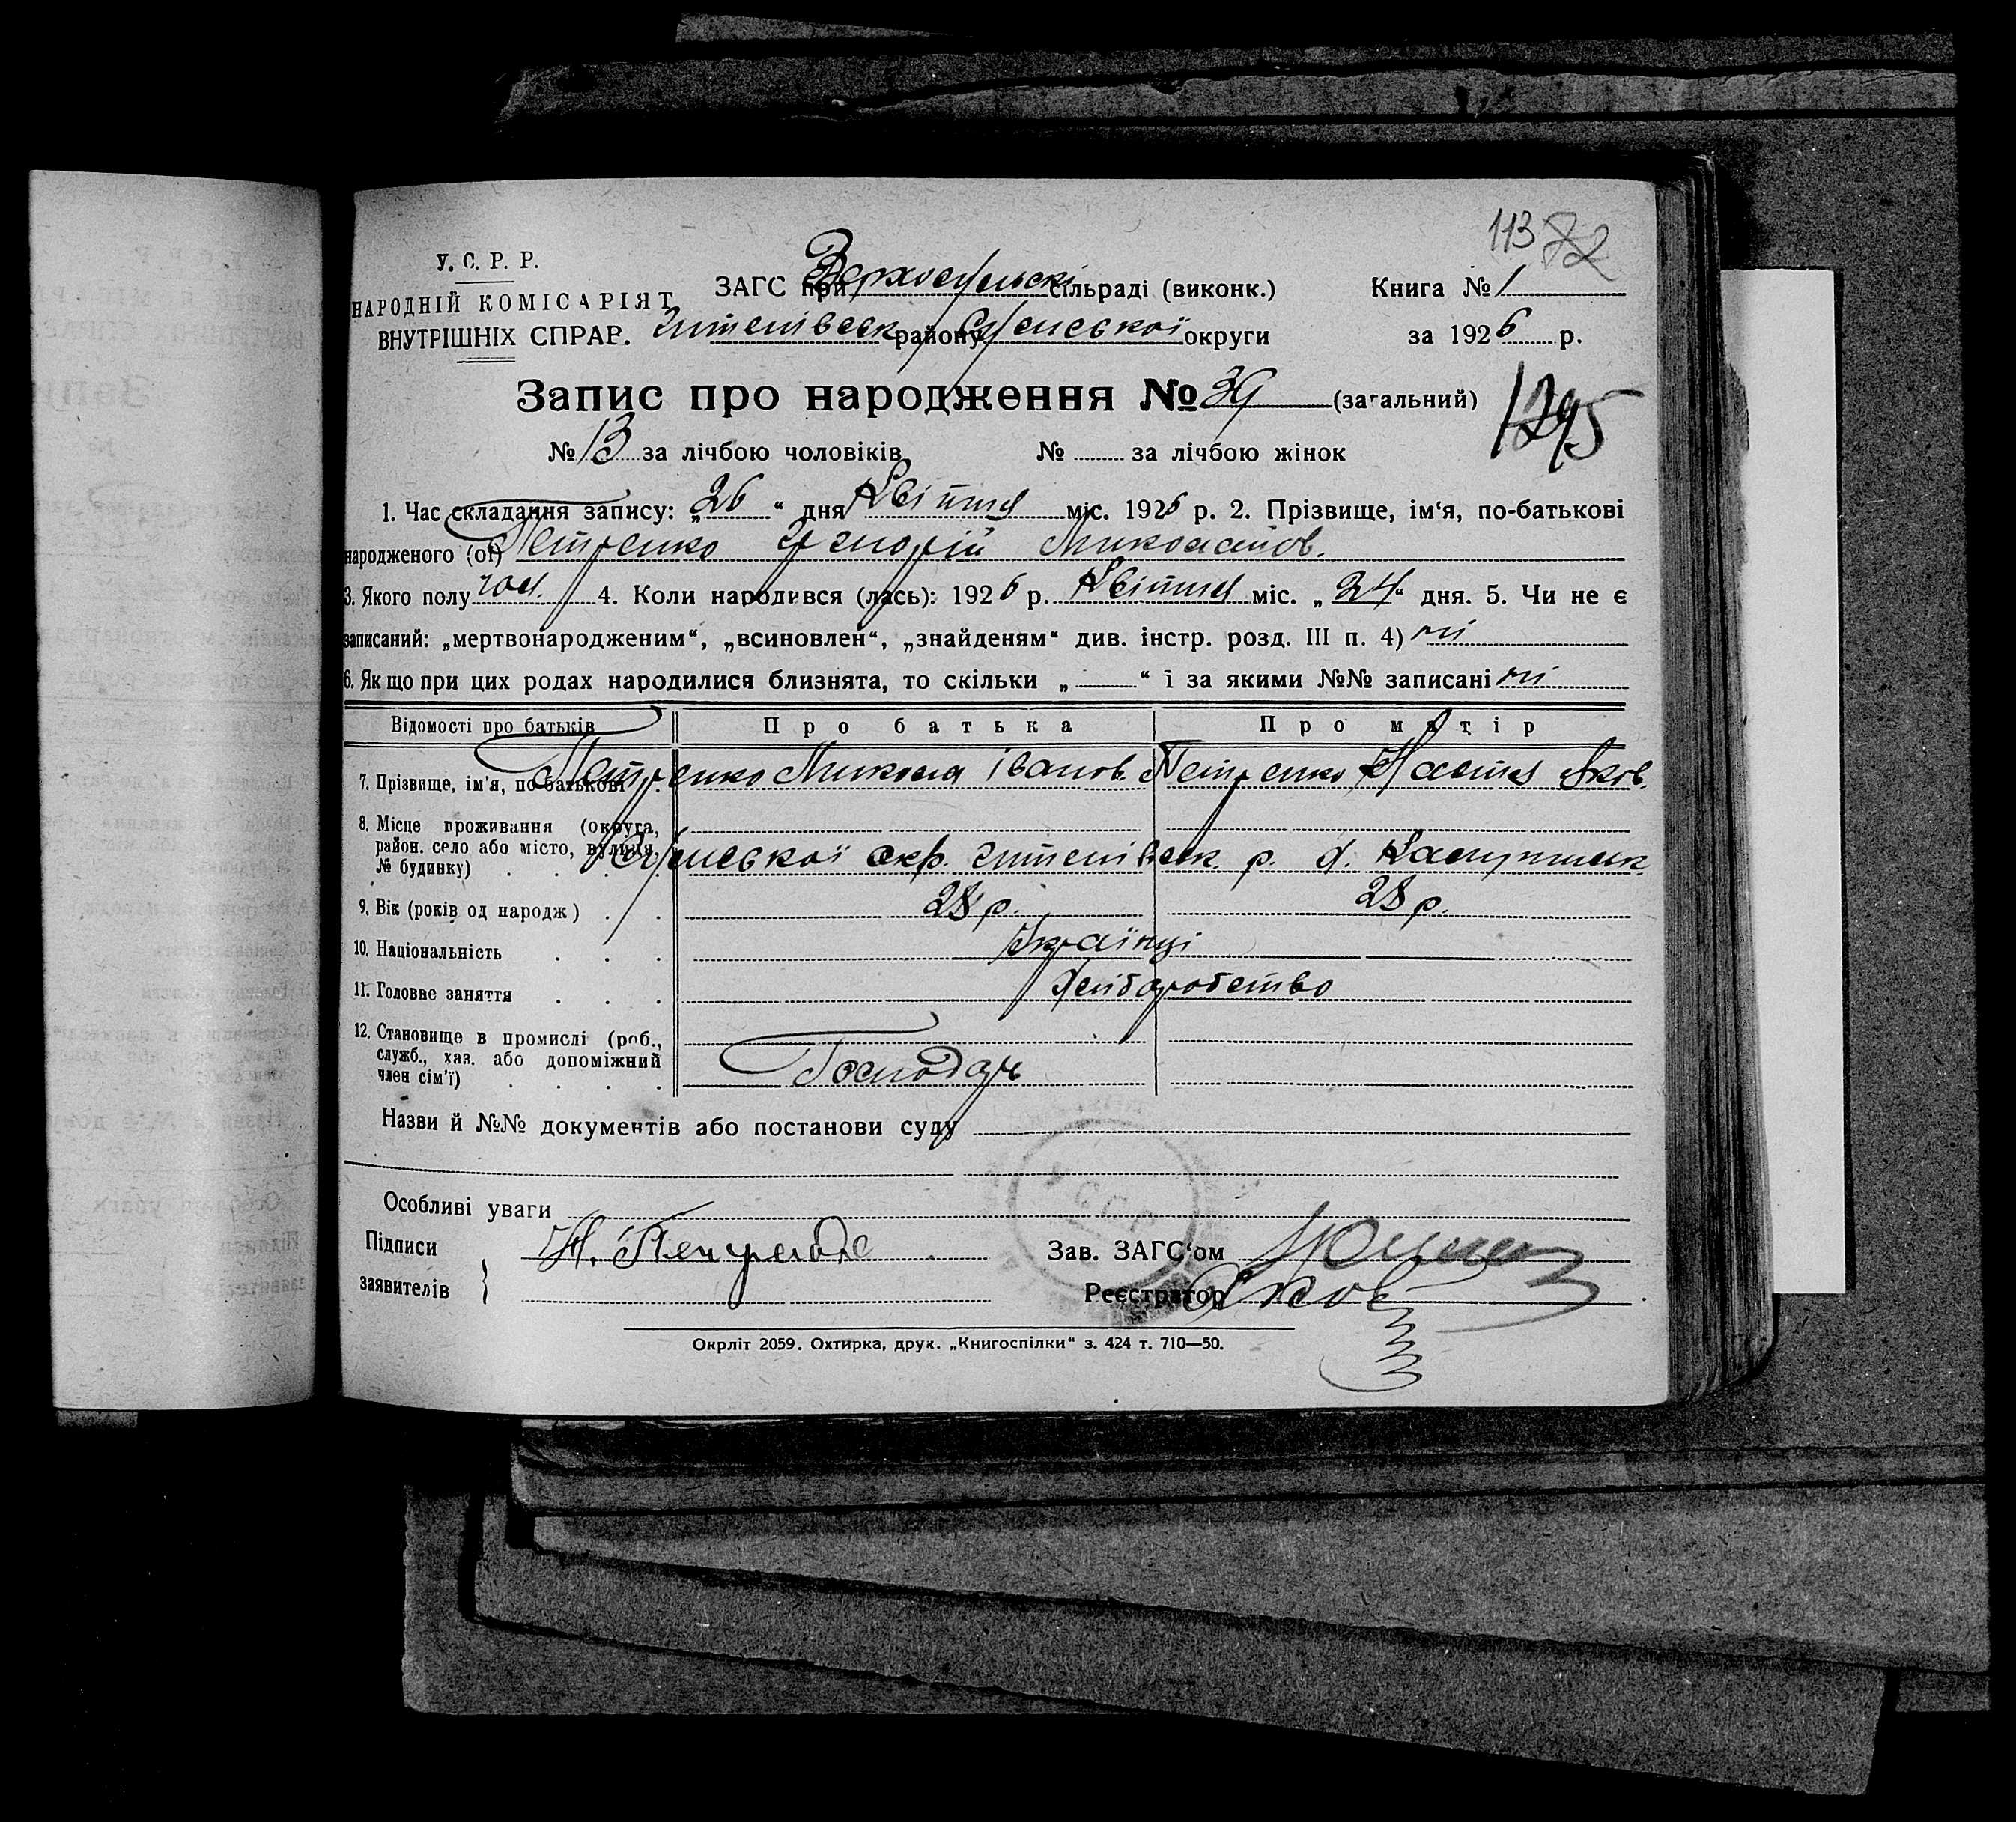 113 72
У. С. Р. Р.
НАРОДНІЙ КОМІСАРІЯТ
ВНУТРІШНІХ СПРАВ.
ЗАГС при Верхосульскі сільраді (виконк.)
Штепівськ району Сумської округи
Книга № 1
за 1926 р.
Запис про народження № 39 (загальний)
1295
№ 13 за лічбою чоловіків № за лічбою жінок
1. Час складання запису: „26“ дня Квітня міс. 1926 р. 2. Прізвище, ім‘я, по-батькові
народженого (оі) Петренко Григорій Миколайов.
3. Якого полу чол. 4. Коли народився (лась): 1926 р. Квітня міс. „24“ дня. 5. Чи не є
записаний: „мертвонародженим“, „всиновлен“, „знайденям“ див. інстр. розд. III п. 4) ні
6. Якщо при цих родах народилися близнята, то скільки „ “ і за якими №№ записані ні
Відомості про батьків Про батька Про матір
7. Прізвище, ім‘я, по-батькові Петренко Микола Іванов. Петренко Настя Яков.
8. Місце проживання (округа,
район. село або місто, вулиця,
№ будинку) Сумської окр. Штепівськ р. х.
9. Вік (років од народж) 28 р. 28 р.
10. Національність Українці
11. Головне заняття Хліборобство
12. Становище в промислі (роб.,
служб., хаз. або допоміжний
член сім‘ї) Господар
Назви й №№ документів або постанови суду
Особливі уваги
Підписи
заявителів
Н. Петренко
Зав. ЗАГС‘ом
Реєстратор
Окрліт 2059. Охтирка, друк. „Книгоспілки“ з. 424 т. 710—50.